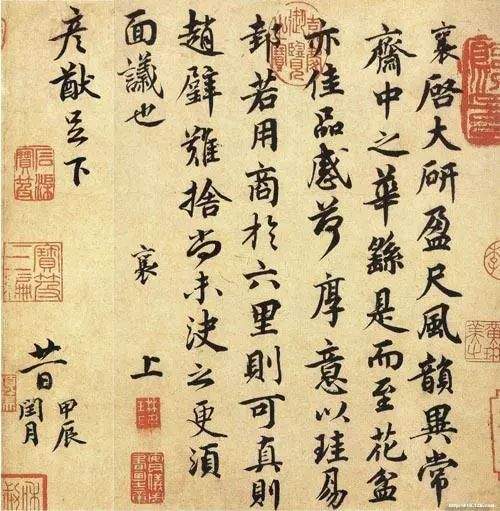 襄啓大研盈尺風韻異常
齋中之華繇是而至花盆
亦佳品感荷厚意以珪易
邽若用商於六里則可真則
趙璧難捨尚未決之更須
面議也
襄
上
彥猷足下
廿一日
甲辰
閏月
石渠寶笈